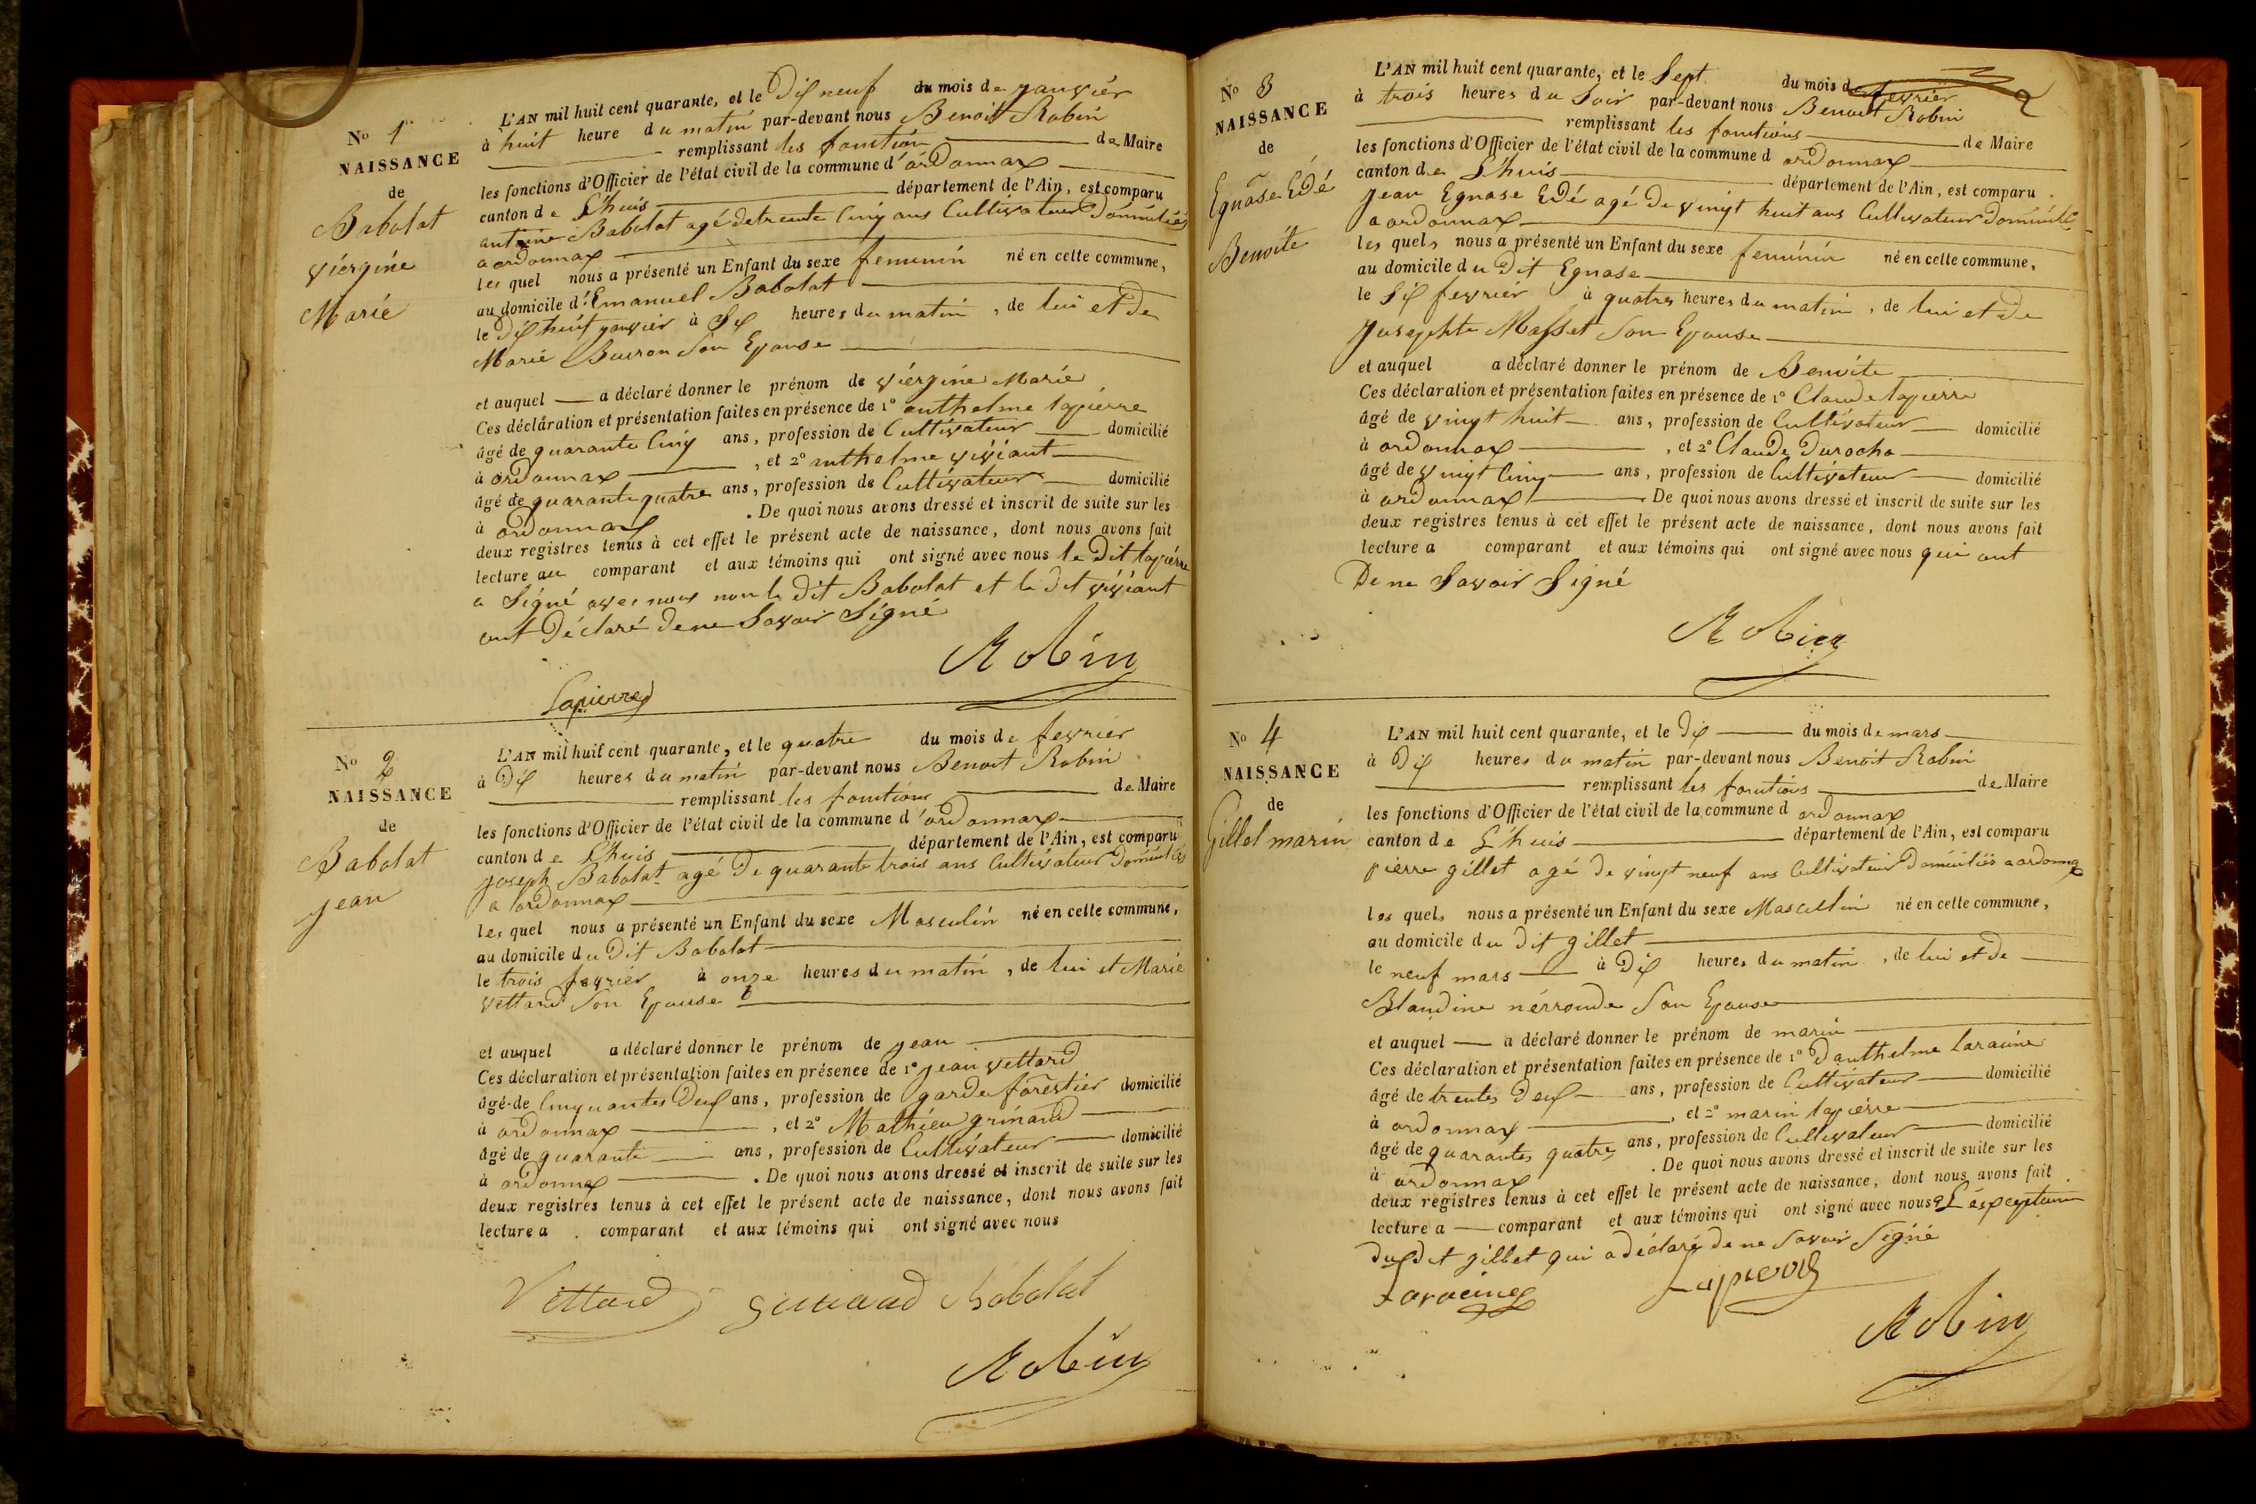 N° 1
NAISSANCE
de
Babolat
viergine
Marie
L'AN mil huit cent quarante, et le Dix neuf du mois de janvier
à huit heure du matin par-devant nous Benoit Robin
remplissant les fonction de Maire
les fonctions d'Officier de l'état civil de la commune d'ordonnax
canton de L'huis département de l'Ain, est comparu
antoine Babolat agé de trente Cinq ans Cultivateur Domiciliés
a ordonnax
les quel nous a présenté un Enfant du sexe feminin né en cette commune,
au domicile d'Emanuel Babolat
le Dix huit janvier à Six heures du matin, de lui et De
Marie Buiron Son Epouse
et auquel a déclaré donner le prénom de viergine Marie
Ces déclaration et présentation faites en présence de 1° anthelme lapierre
âgé de quarante Cinq ans, profession de Cultivateur domicilié
à ordonnax, et 2° anthelme viviant
âgé de quarante quatre ans, profession de Cultivateur domicilié
à ordonnax. De quoi nous avons dressé et inscrit de suite sur les
deux registres tenus à cet effet le présent acte de naissance, dont nous avons fait
lecture au comparant et aux témoins qui ont signé avec nous le Dit lapierre
a Signé avec nous non le dit Babolat et le dit viviant
ont Déclaré de ne Savoir Signé
Robin
Lapierre
N° 2
NAISSANCE
de
Babolat
jean
L'AN mil huit cent quarante, et le quatre du mois de fevrier
à Dix heures du matin par-devant nous Benoit Robin
remplissant les fonctions de Maire
les fonctions d'Officier de l'état civil de la commune d'ordonnax
canton de L'huis département de l'Ain, est comparu
joseph Babolat agé De quarante trois ans Cultivateur Domiciliés
a ordonnax
les quel nous a présenté un Enfant du sexe Masculin né en cette commune,
au domicile du Dit Babolat
le trois fevrier à onze heures du matin, de lui et Marie
vettard Son Epouse
et auquel a déclaré donner le prénom de jean
Ces déclaration et présentation faites en présence de 1° jean vettard
âgé de Cinquantes Deux ans, profession de garde forestier domicilié
à ordonnax, et 2° Mathieu grinand
âgé de quarante ans, profession de Cultivateur domicilié
à ordonnax. De quoi nous avons dressé et inscrit de suite sur les
deux registres tenus à cet effet le présent acte de naissance, dont nous avons fait
lecture a comparant et aux témoins qui ont signé avec nous
Vettard Babolat
Robin
N° 3
NAISSANCE
de
Egnase Edé
Benoite
L'AN mil huit cent quarante, et le Sept du mois de fevrier
à trois heures du Soir par-devant nous Benoit Robin
remplissant les fonctions de Maire
les fonctions d'Officier de l'état civil de la commune d ordonnax
canton de L'huis département de l'Ain, est comparu
jean Egnase Edé agé De vingt huit ans Cultivateur Domicilié
a ordonnax
les quels nous a présenté un Enfant du sexe feminin né en cette commune,
au domicile du Dit Egnase
le Six fevrier à quatres heures du matin, de lui et De
josephte Masset Son Epouse
et auquel a déclaré donner le prénom de Benoite
Ces déclaration et présentation faites en présence de 1° Claude lapierre
âgé de vingt huit ans, profession de Cultivateur domicilié
à ordonnax, et 2° Claude Durocha
âgé de vingt Cinq ans, profession de Cultivateur domicilié
à ordonnax. De quoi nous avons dressé et inscrit de suite sur les
deux registres tenus à cet effet le présent acte de naissance, dont nous avons fait
lecture a comparant et aux témoins qui ont signé avec nous qui ont
De ne Savoir Signé
Robin
N° 4
NAISSANCE
de
Gillet marin
L'AN mil huit cent quarante, et le Dix du mois de mars
à Dix heures du matin par-devant nous Benoit Robin
remplissant les fonctions de Maire
les fonctions d'Officier de l'état civil de la commune d ordonnax
canton de L'huis département de l'Ain, est comparu
pierre gillet agé De vingt neuf ans Cultivateur Domiciliés a ordonnax
les quels nous a présenté un Enfant du sexe Masculin né en cette commune,
au domicile du Dit gillet
le neuf mars à Dix heures du matin, de lui et de
Blandine nérronde Son Epouse
et auquel a déclaré donner le prénom de marin
Ces déclaration et présentation faites en présence de 1° D'anthelme laracine
âgé de trentes Deux ans, profession de Cultivateur domicilié
à ordonnax, et 2° marin lapierre
âgé de quarantes quatres ans, profession de Cultivateur domicilié
à ordonnax. De quoi nous avons dressé et inscrit de suite sur les
deux registres tenus à cet effet le présent acte de naissance, dont nous avons fait
lecture a comparant et aux témoins qui ont signé avec nous
dit gillet qui a déclaré de ne Savoir Signé
Laracine Lapierre
Robin